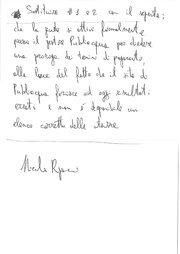 Sostituire # 1 e 2 con il seguente:
che la giunta si attivi formalmente
presso il gestore Publiacqua per chiedere
una proroga dei termini di pagamento,
alla luce del fatto che il sito di
Publiacqua fornisce ad oggi risultati
errati e non è disponibile un
elenco corretto delle